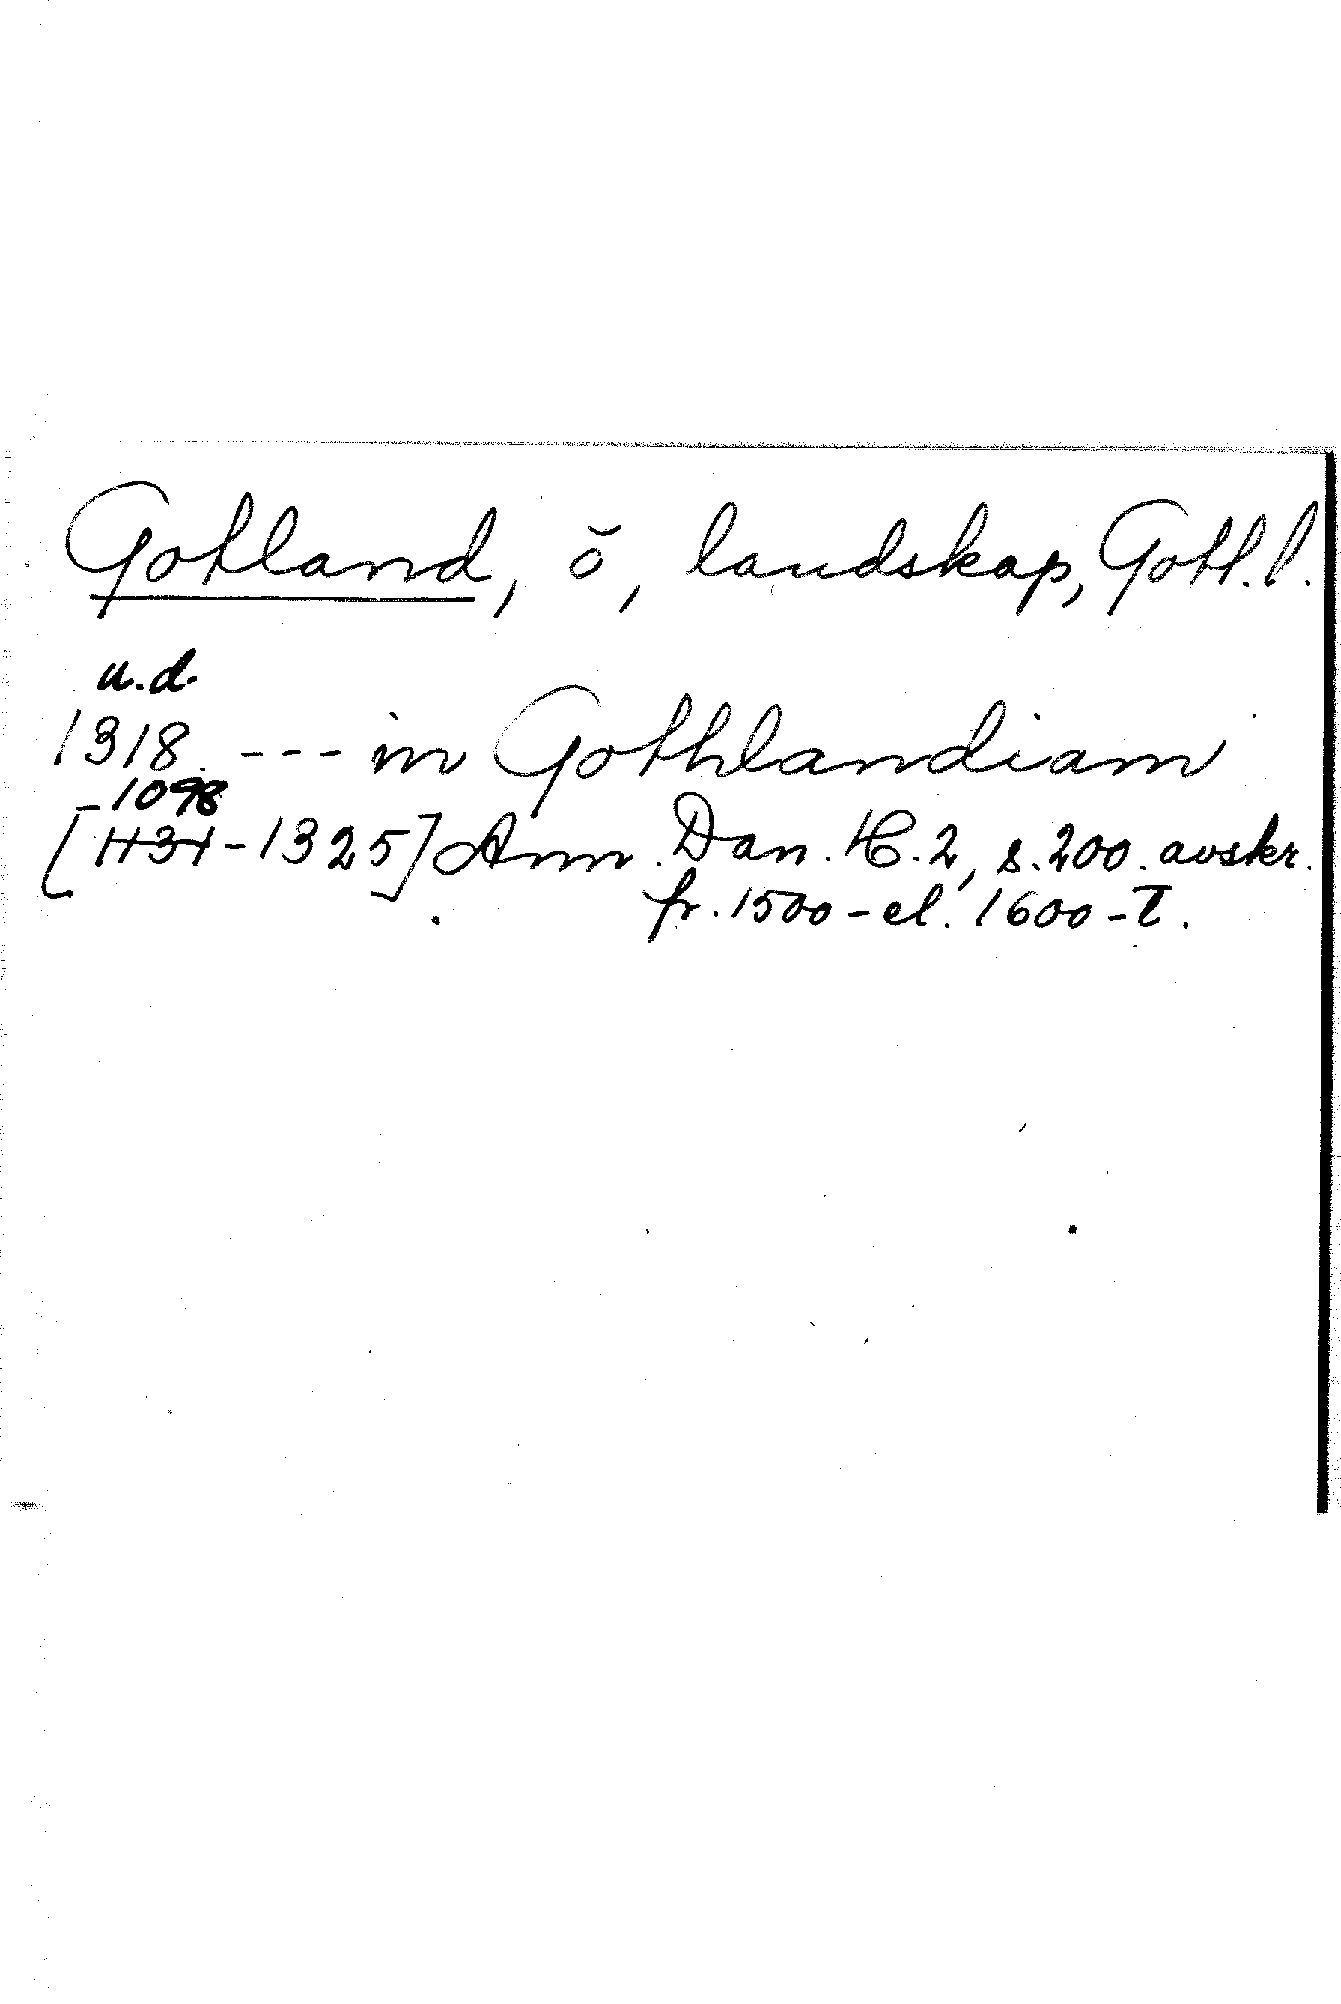 Gotland, ö, landskap, Gotl. l.
u.d.
1318. --- in Gothlandiam
-1098
[1131-1325] Ann. Dan. H. 2, s. 200. avskr.
fr. 1500-el. 1600-t.